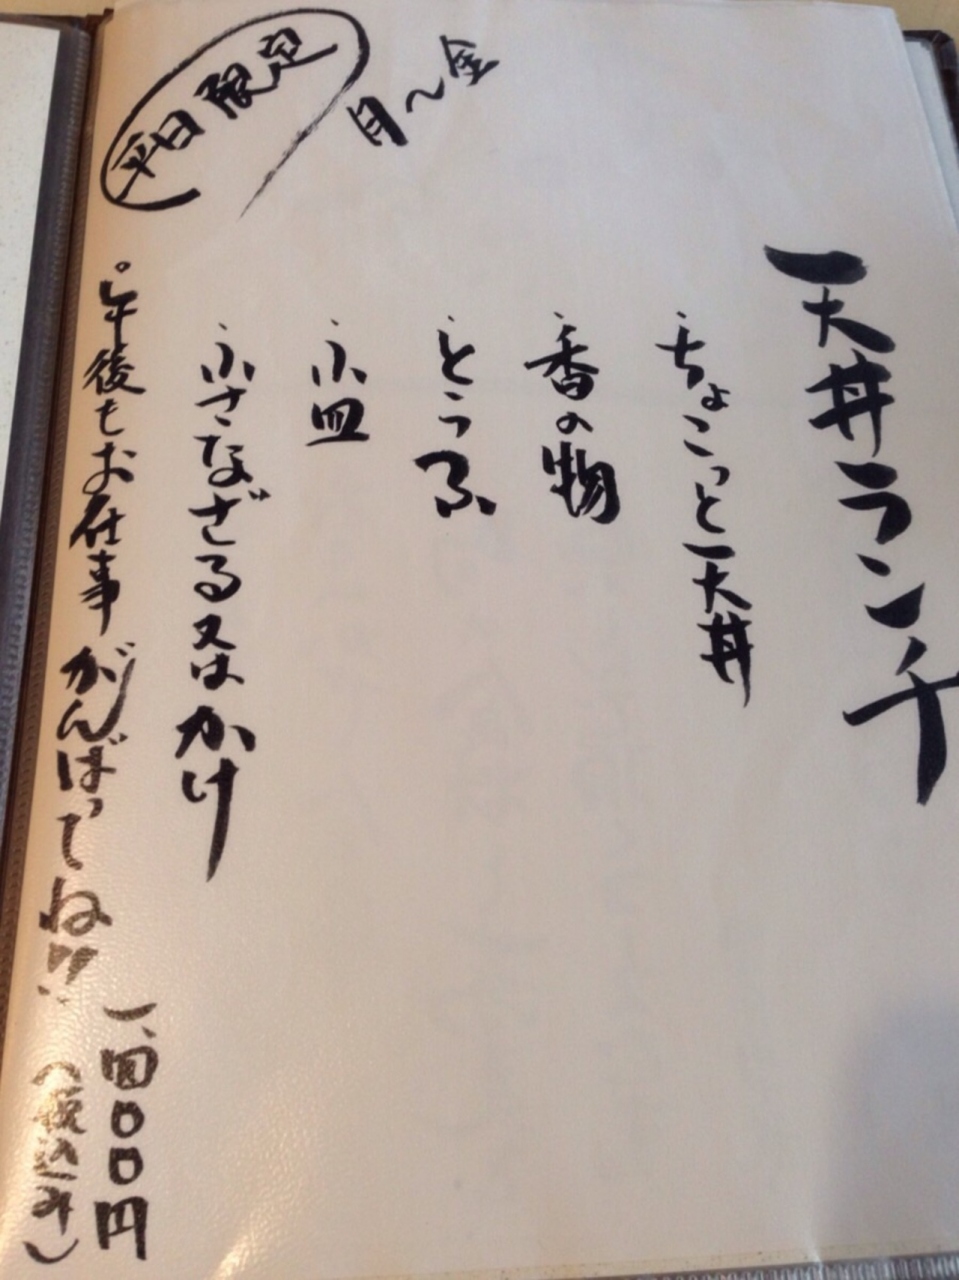 平日限定
月〜金
天丼ランチ
、ちょこっと天丼
、香の物
、とうふ
、小皿
、小さなざる又はかけ
。午後もお仕事がんばってね!!
一、四00円
（税込み）